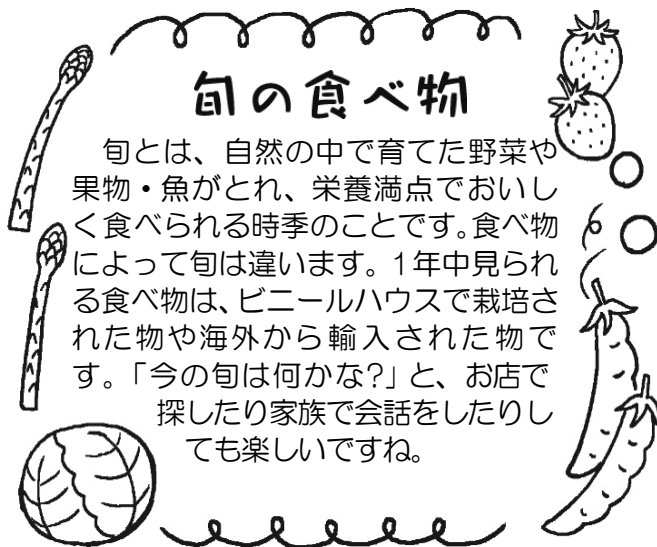 旬の食べ物
旬とは、自然の中で育てた野菜や
果物・魚がとれ、栄養満点でおいし
く食べられる時季のことです。食べ物
によって旬は違います。1年中見られ
る食べ物は、ビニールハウスで栽培さ
れた物や海外から輸入された物で
す。「今の旬は何かな?」と、お店で
探したり家族で会話をしたりし
ても楽しいですね。